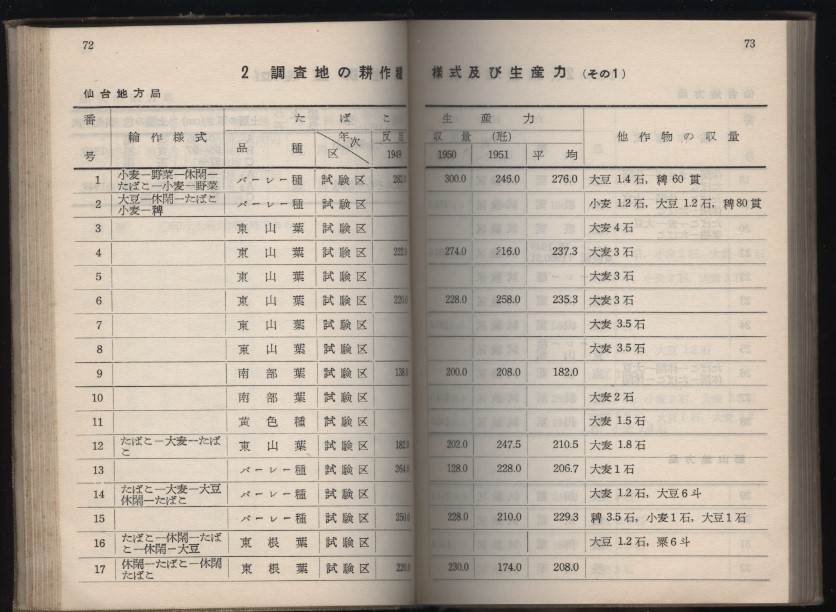 72
2 調査地の耕作種
仙台地方局
番号 輪作様式 たばこ
品種 年次 区 反当
1949
1 小麦―野菜―休閑―
たばこ―小麦―野菜 バーレー種 試験区
2 大豆―休閑―たばこ
小麦―稗 バーレー種 試験区
3 東山葉 試験区
4 東山葉 試験区 222.0
5 東山葉 試験区
6 東山葉 試験区 220.0
7 東山葉 試験区
8 東山葉 試験区
9 南部葉 試験区 138.0
10 南部葉 試験区
11 黄色種 試験区
12 たばこ―大麦―たば
こ 東山葉 試験区 182.0
13 バーレー種 試験区 264.0
14 たばこ―大麦―大豆
休閑―たばこ バーレー種 試験区
15 バーレー種 試験区 250.0
16 たばこ―休閑―たば
こ―休閑―大豆 東根葉 試験区
17 休閑―たばこ―休閑
たばこ 東根葉 試験区 220.0
73
様式及び生産力 (その1)
生産力 他作物の収量
収量 (瓩)
1950 1951 平均
300.0 246.0 276.0 大豆 1.4石, 稗 60貫
小麦 1.2石, 大豆 1.2石, 稗80貫
大麦4石
274.0 216.0 237.3 大麦3石
大麦3石
228.0 258.0 235.3 大麦3石
大麦 3.5石
大麦 3.5石
200.0 208.0 182.0
大麦2石
大麦 1.5石
202.0 247.5 210.5 大麦 1.8石
128.0 228.0 206.7 大麦1石
大麦 1.2石, 大豆6斗
228.0 210.0 229.3 稗 3.5石, 小麦1石, 大豆1石
大豆 1.2石, 粟6斗
230.0 174.0 208.0